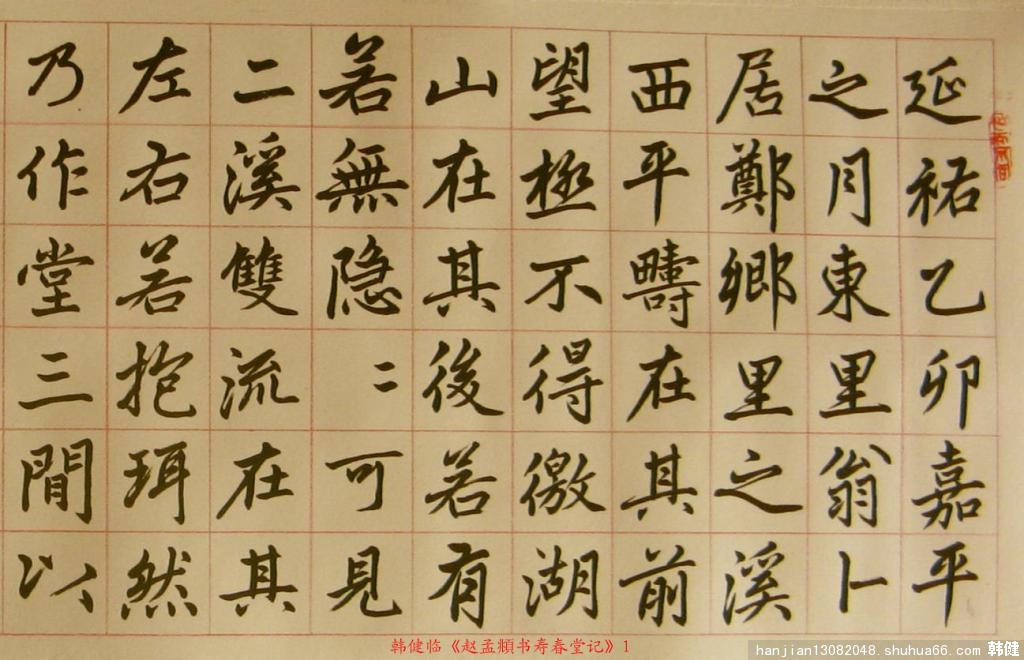 延祐乙卯嘉平
之月東里翁卜
居鄭鄉里之溪
西平疇在其前
望極不得徼湖
山在其後若有
若無隐〻可見
二溪雙流在其
左右若抱珥然
乃作堂三間以
韩健临《赵孟頫书寿春堂记》1
hanjian13082048. shuhua66. com 韩健